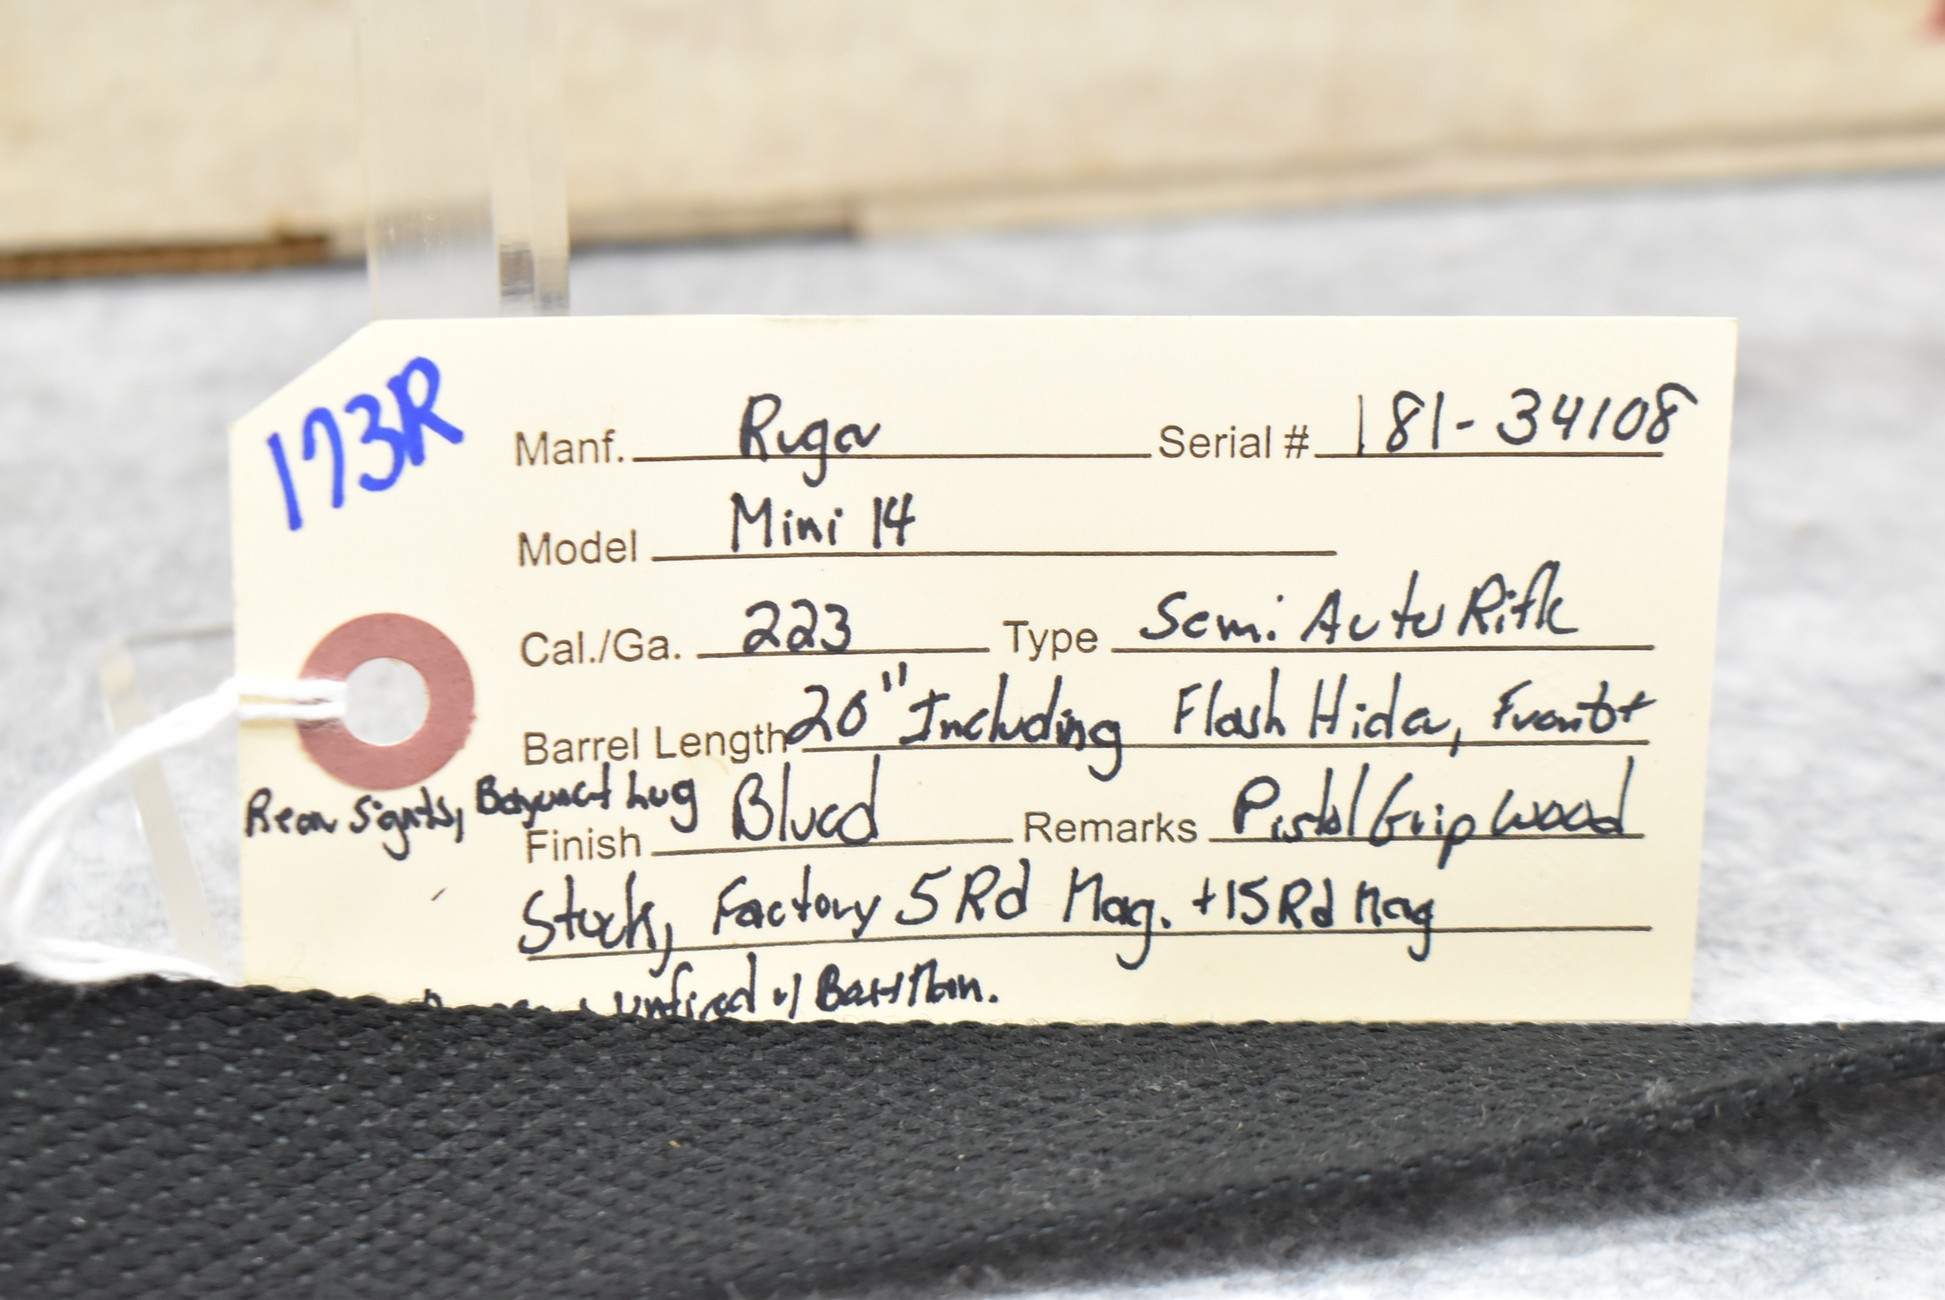 173R
Manf. Ruger Serial # 181-34108
Model Mini 14
Cal./Ga. 223 Type Semi Auto Rifle
Barrel Length 20" Including Flash Hider, Front +
Rear Sights, Bayonet Lug
Finish Blued Remarks Pistol Grip Wood
Stock, Factory 5 Rd Mag. + 15 Rd Mag
unfired w/ Box + Man.